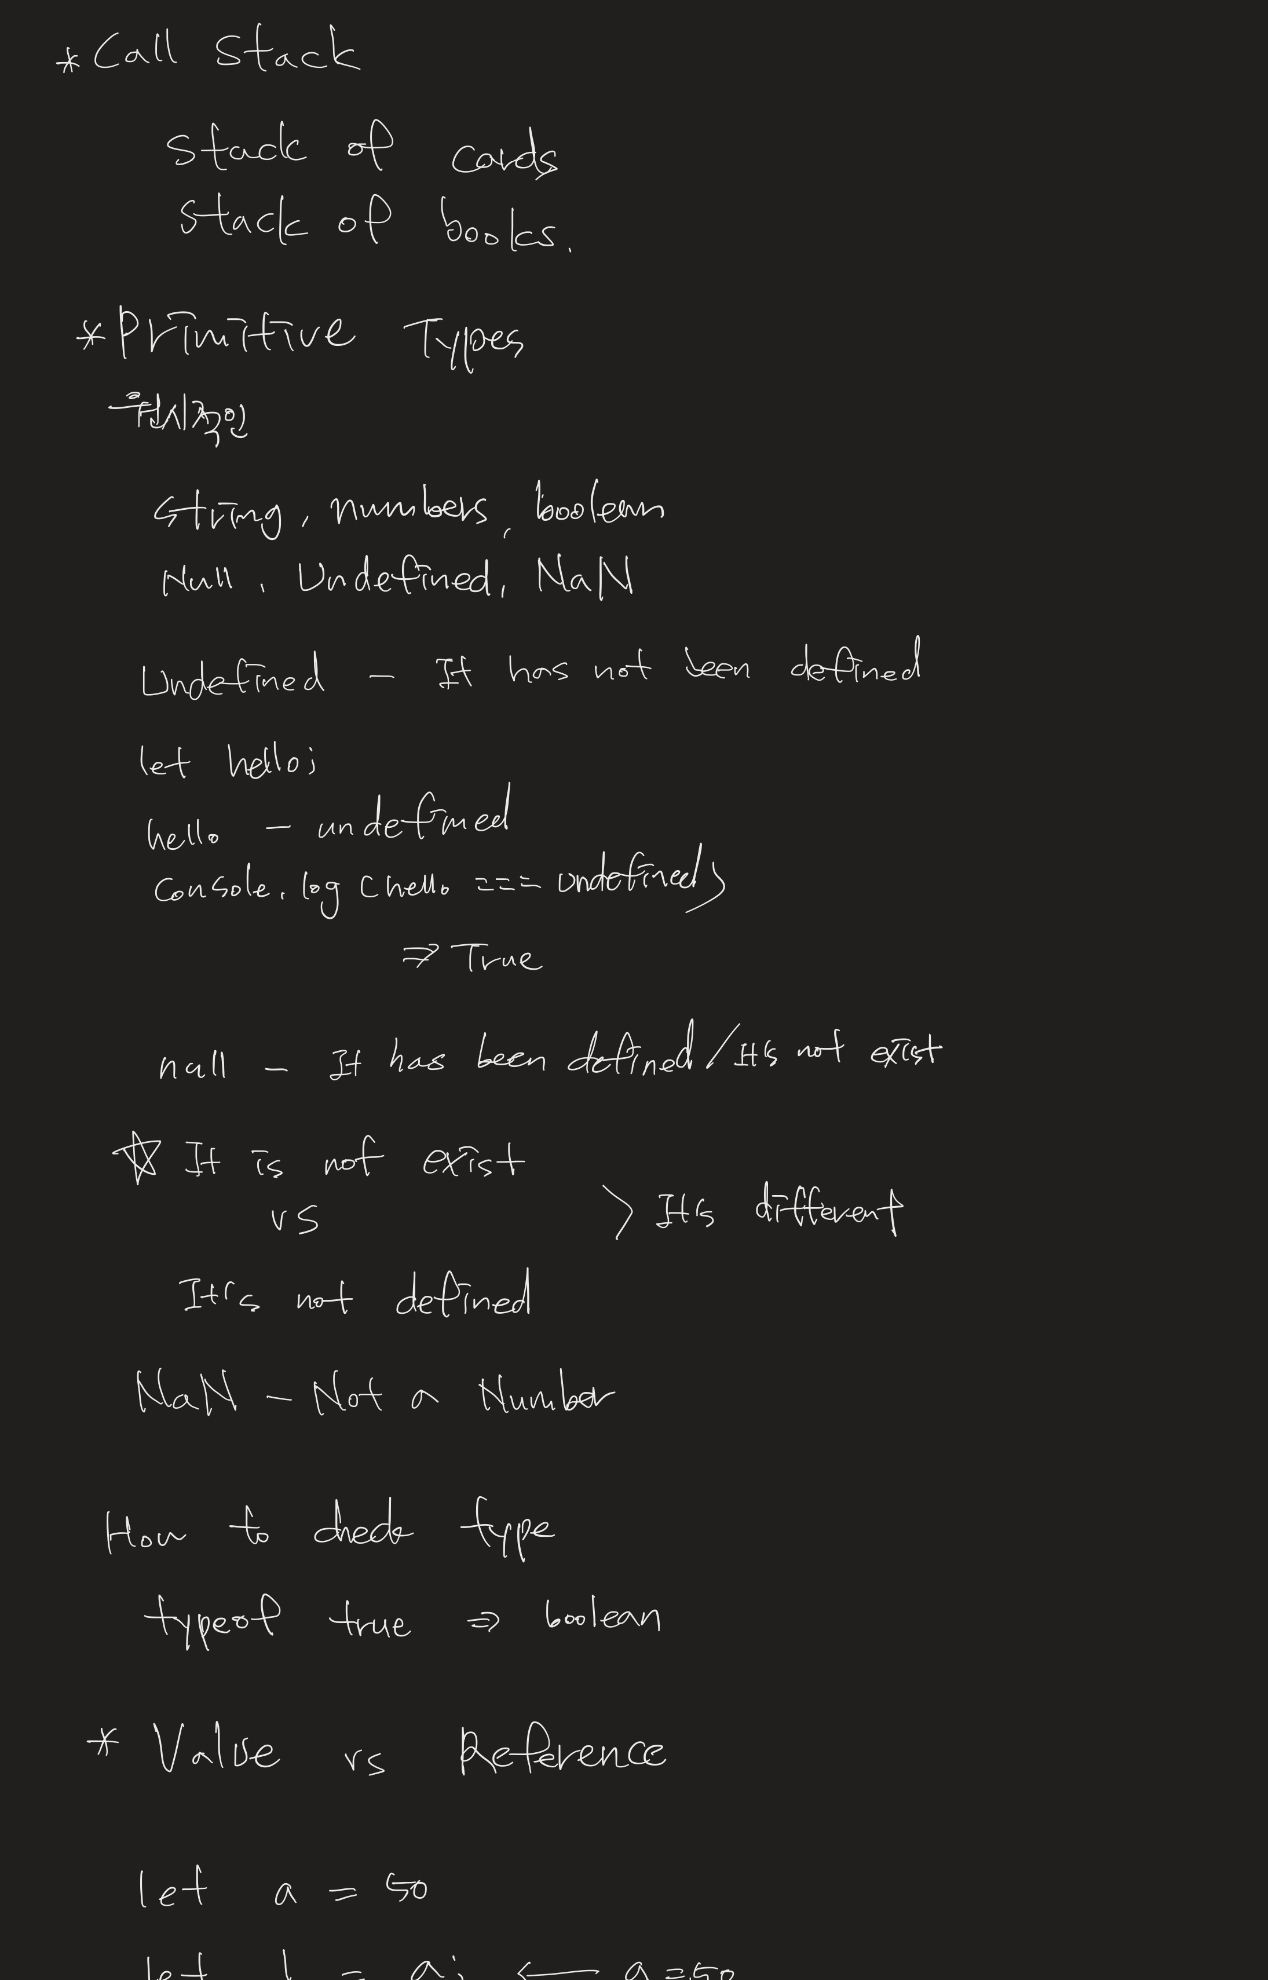 * Call Stack
Stack of cards
Stack of books.
* Primitive Types
원시적인
String, numbers, boolean
Null, Undefined, NaN
Undefined - It has not been defined
let hello;
hello - undefined
Console.log (hello === undefined)
⇒ True
null - It has been defined / It's not exist
☆ It is not exist
vs
> It's different
It's not defined
NaN - Not a Number
How to check type
typeof true ⇒ boolean
* Value vs Reference
let a = 50
let = a; ← a = 50